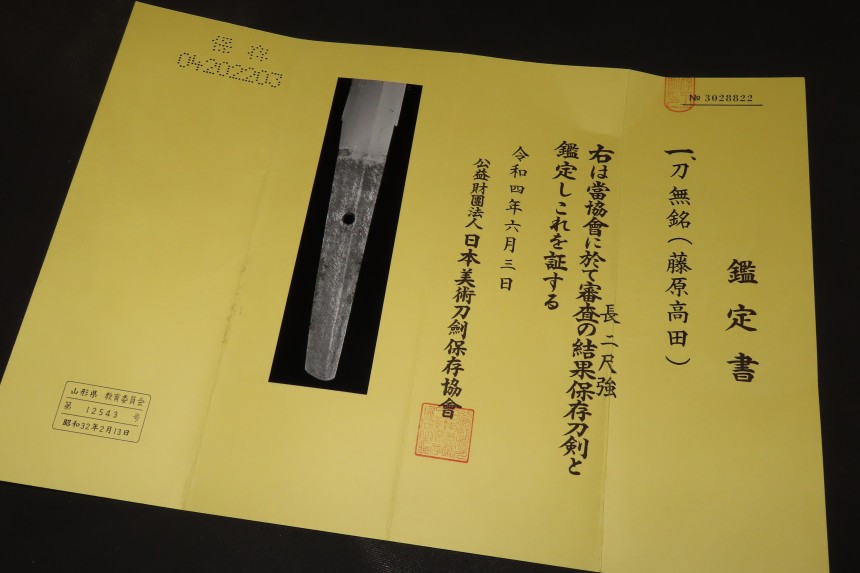 № 3028822
鑑定書
一、刀 無銘（藤原高田）
長 二尺強
右は當協會に於て審査の結果保存刀剣と
鑑定しこれを証する
令和四年六月三日
公益財團法人 日本美術刀劍保存協會
保存
04202203
山形県 教育委員会
第 12543 号
昭和32年2月13日